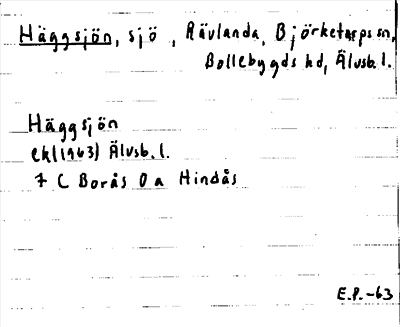 Häggsjön, sjö, Rävlanda, Björketorps sn,
Bollebygds hd, Älvsb. l.
Häggsjön
ek (1963) Älvsb. l.
7 C Borås 0 a Hindås
E.P. -63